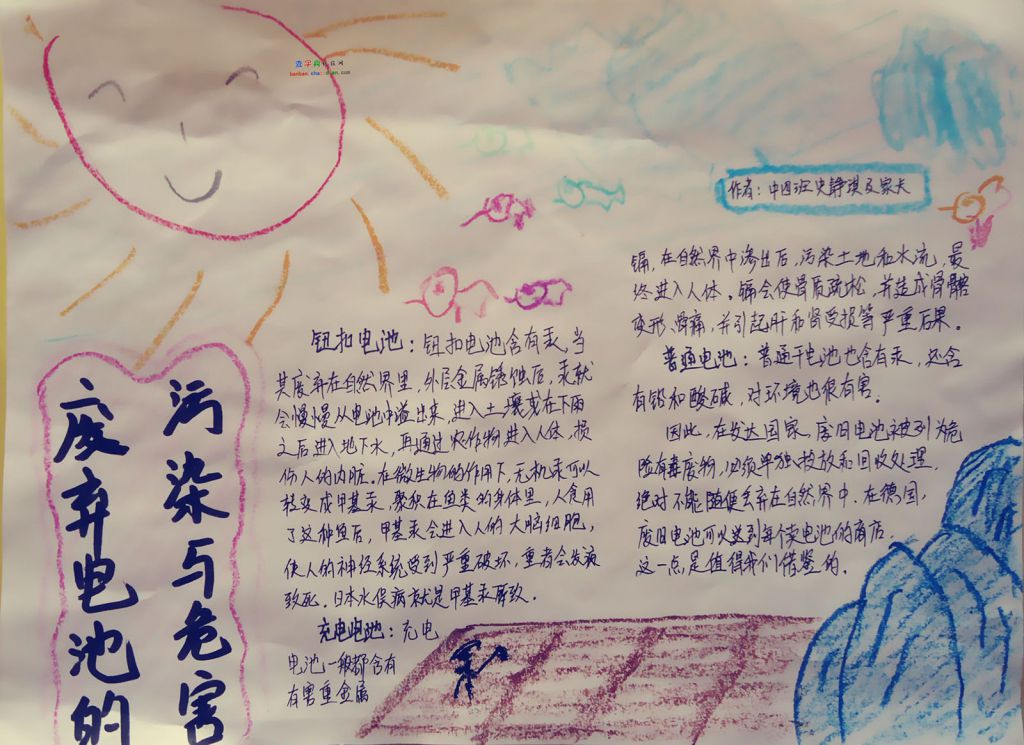 查字典
作者：中四班史铮琪及家长
废弃电池的
污染与危害
钮扣电池：钮扣电池含有汞，当
其废弃在自然界里，外层金属锈蚀后，汞就
会慢慢从电池中溢出来，进入土壤或在下雨
之后进入地下水，再通过农作物进入人体，损
伤人的内脏。在微生物的作用下，无机汞可以
转变成甲基汞，聚积在鱼类的身体里，人食用
了这种鱼后，甲基汞会进入人的大脑细胞，
使人的神经系统受到严重破坏，重者会发疯
致死。日本水俣病就是甲基汞所致。
充电电池：充电
电池一般都含有
有害重金属
镉，在自然界中渗出后，污染土地和水流，最
终进入人体。镉会使骨质疏松，并造成骨骼
变形、骨痛，并引起肝和肾受损等严重后果。
普通电池：普通干电池也含有汞，还含
有铅和酸碱，对环境也很有害。
因此，在发达国家，废旧电池被列为危
险有毒废物，必须单独投放和回收处理，
绝对不能随便丢弃在自然界中．在德国，
废旧电池可以送到每个卖电池的商店．
这一点是值得我们借鉴的．